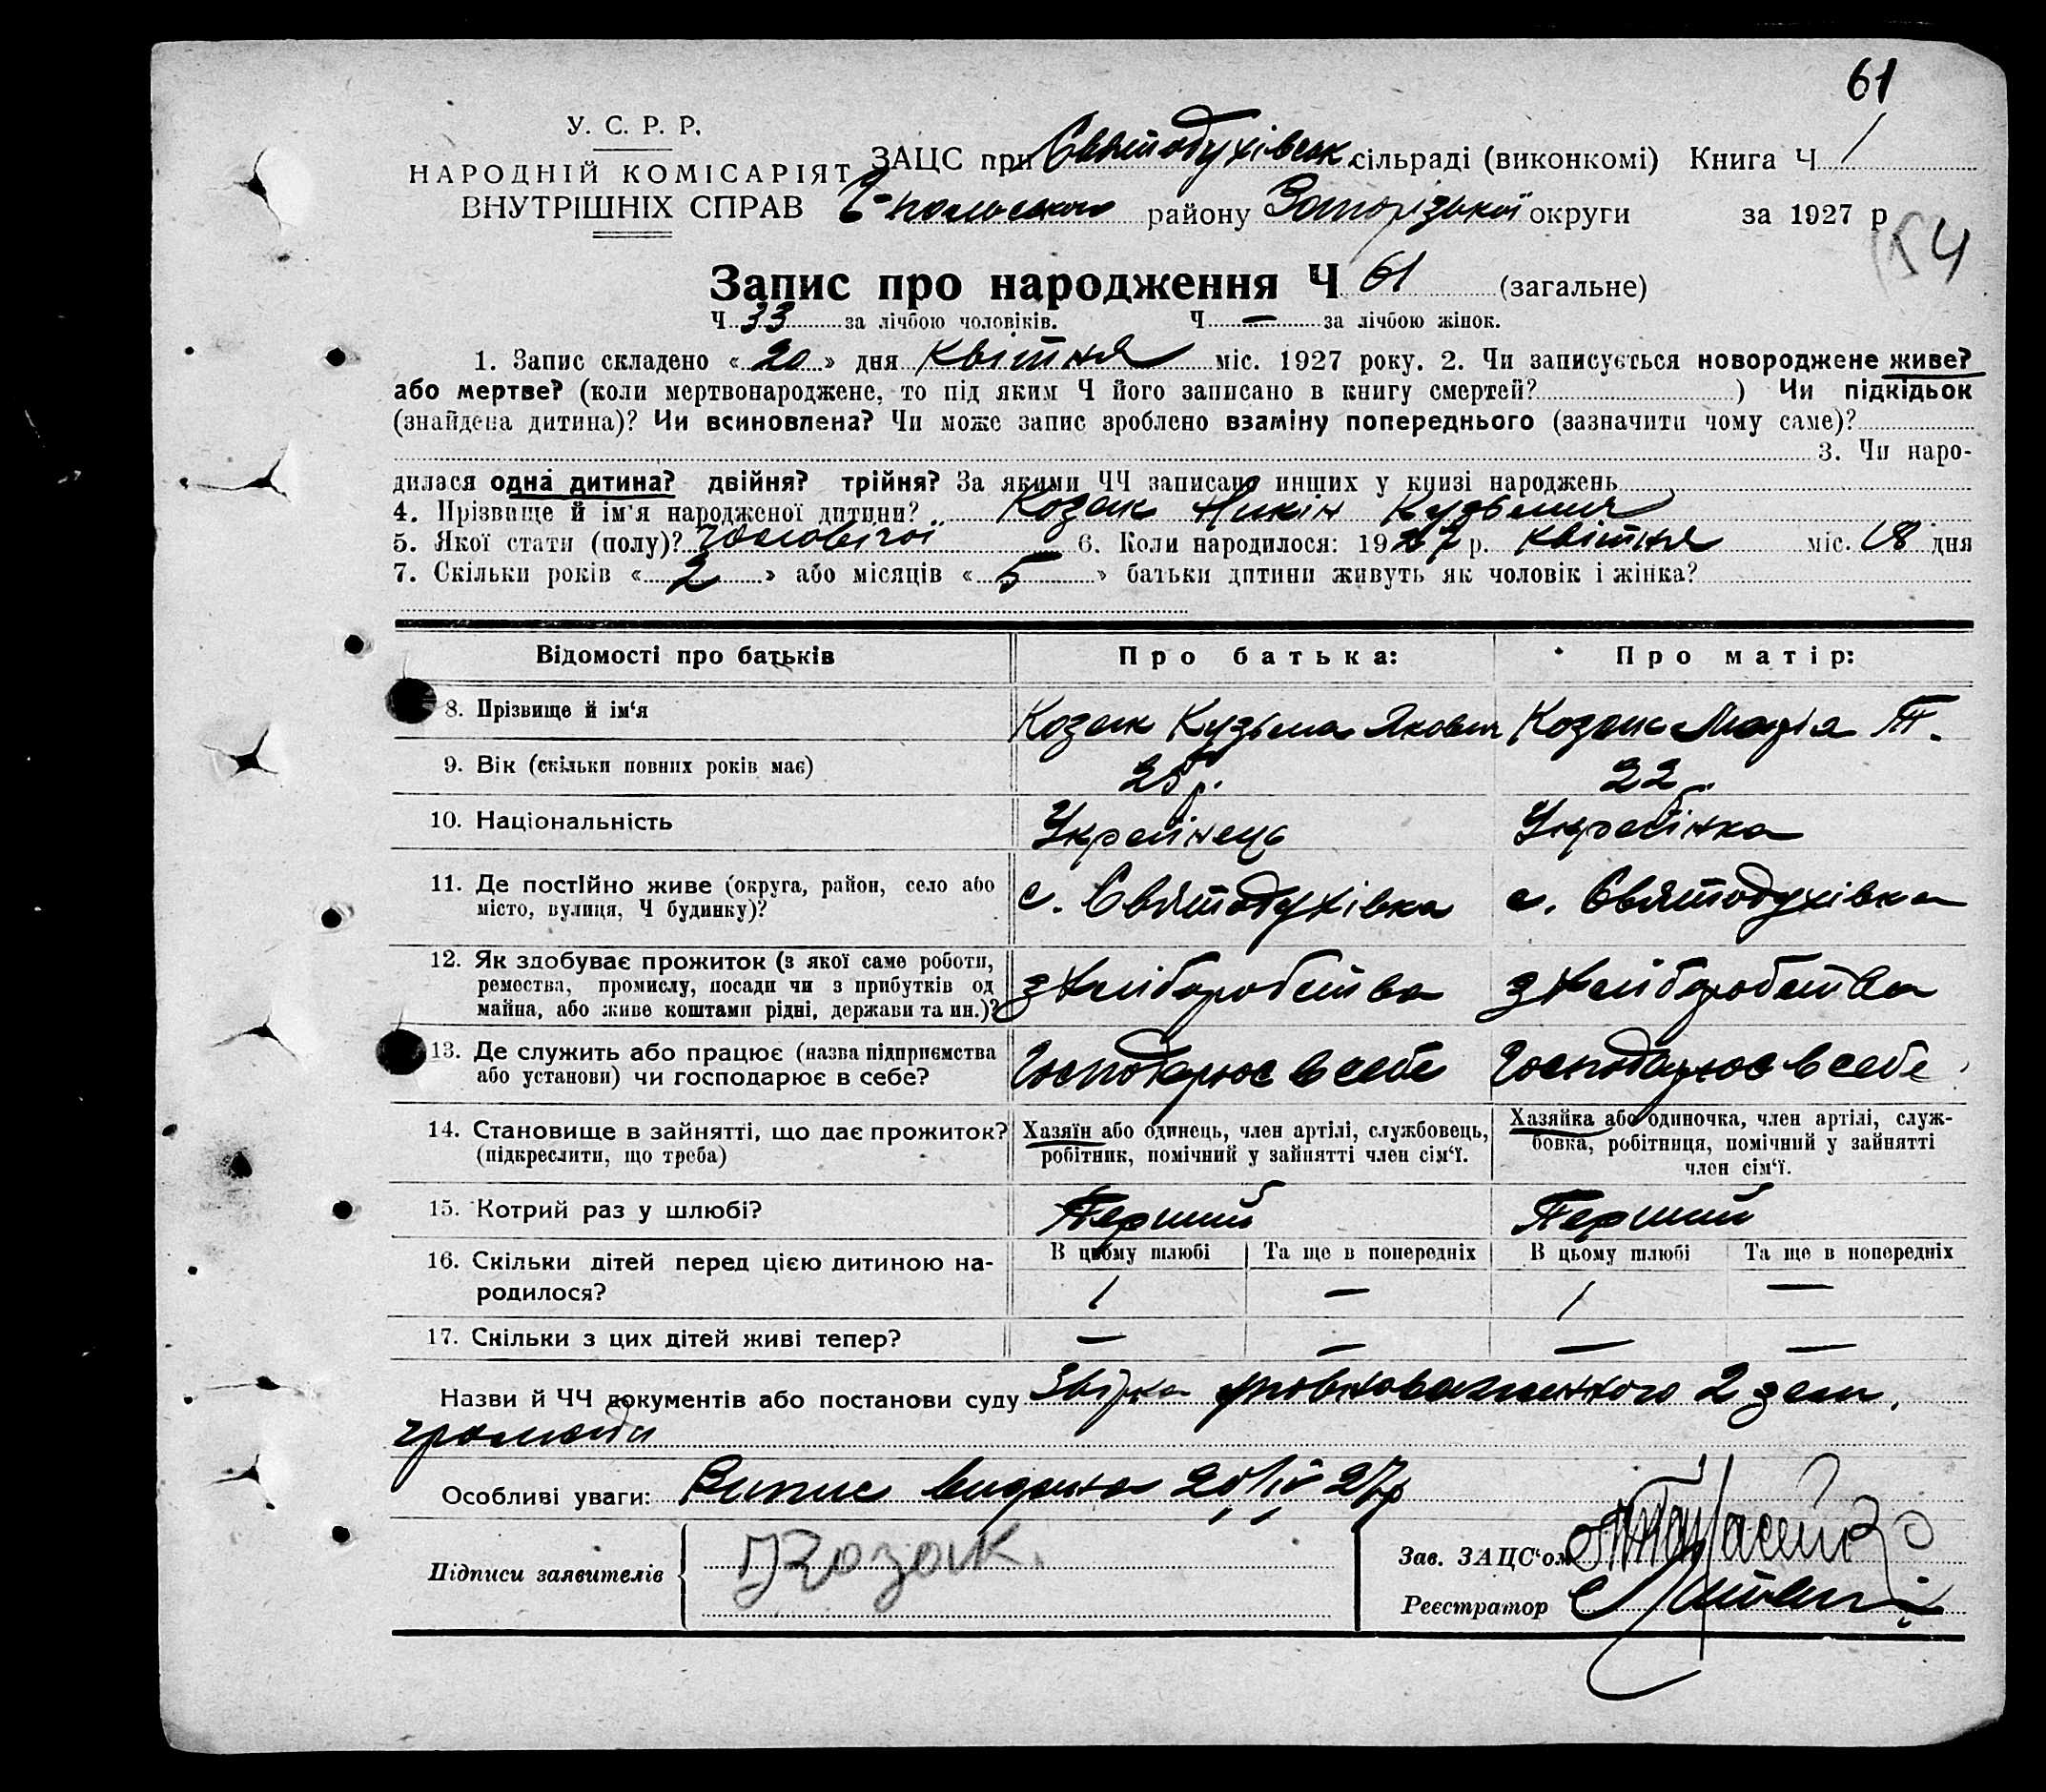 61
У. С. Р. Р.
НАРОДНІЙ КОМІСАРІЯТ
ВНУТРІШНІХ СПРАВ
ЗАЦС при Святодухівськ. сільраді (виконкомі) Книга Ч 1
району Запорізької округи за 1927 р
54
Запис про народження Ч 61 (загальне)
Ч 33 за лічбою чоловіків. Ч — за лічбою жінок.
1. Запис складено «20» дня квітня міс. 1927 року. 2. Чи записується новороджене живе?
або мертве? (коли мертвонароджене, то під яким Ч його записано в книгу смертей? ) Чи підкідьок
(знайдена дитина)? Чи всиновлена? Чи може запис зроблено взаміну попереднього (зазначити чому саме)?
3. Чи наро-
дилася одна дитина? двійня? трійня? За якими ЧЧ записано инших у книзі народжень
4. Прізвище й ім'я народженої дитини? Козак Никін Кузьмич
5. Якої стати (полу)? Чоловічої 6. Коли народилося: 1927 р. квітня міс. 18 дня
7. Скільки років «2» або місяців «5» батьки дитини живуть як чоловік і жінка?
Відомості про батьків Про батька: Про матір:
8. Прізвище й ім'я Козак Кузьма Якович Козак Марія Т.
9. Вік (скільки повних років має) 25 р. 22
10. Національність Українець Українка
11. Де постійно живе (округа, район, село або
місто, вулиця, Ч будинку)? с. Святодухівка с. Святодухівка
12. Як здобуває прожиток (з якої саме роботи,
ремества, промислу, посади чи з прибутків од
майна, або живе коштами рідні, держави та ин.)? з хліборобства з хліборобства
13. Де служить або працює (назва підприємства
або установи) чи господарює в себе? Господарює в себе Господарює в себе
14. Становище в зайнятті, що дає прожиток?
(підкреслити, що треба)
Хазяїн або одинець, член артілі, службовець,
робітник, помічний у зайнятті член сім'ї.
Хазяйка або одиночка, член артілі, служ-
бовка, робітниця, помічний у зайнятті
член сім'ї.
15. Котрий раз у шлюбі? Перший Перший
16. Скільки дітей перед цією дитиною на-
родилося?
В цьому шлюбі Та ще в попередніх В цьому шлюбі Та ще в попередніх
1 — 1 —
17. Скільки з цих дітей живі тепер? — — — —
Назви й ЧЧ документів або постанови суду Звірка уповноваженного 2 зем.
громади
Особливі уваги: Випис видано 20/IV 27р
Підписи заявителів Козак.
Зав. ЗАЦС'ом
Реєстратор